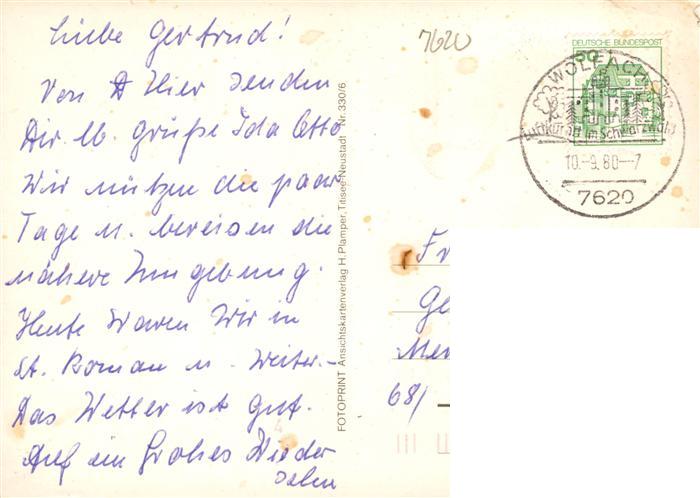 Liebe Gertrud!
Von Hier senden
Dir lb. Grüße Ida Otto
Wir nützen die paar
Tage u. bereisen die
nähere Umgebung.
Heute Waren Wir in
St. Roman u. Weiter.-
Das Wetter ist gut.
Auf ein Großes Wieder
sehn
FOTOPRINT Ansichtskartenverlag H. Plamper, Titisee-Neustadt Nr. 330/6
7620
DEUTSCHE BUNDESPOST
50
WOLFACH
Luftkurort im Schwarzwald
10.-9.80--7
7620
Fr
Ge
68/